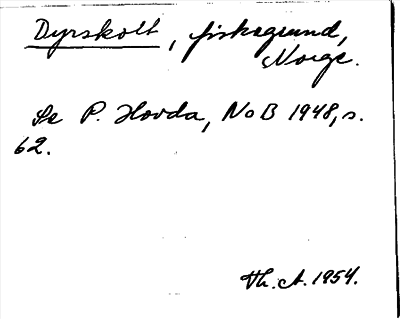 Dyrskott, fiskegrund,
Norge.
Se P. Hovda, NoB 1948, s.
62.
Th. A. 1954.